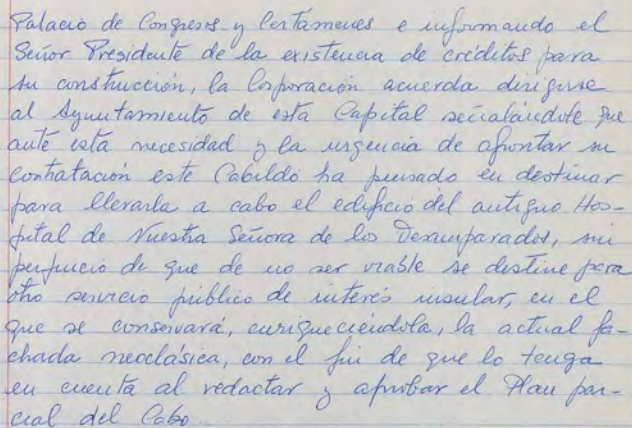 Palacio de Congresos y Certámenes e informando el
Señor Presidente de la existencia de créditos para
su construcción, la Corporación acuerda dirigirse
al Ayuntamiento de esta Capital señalándole que
ante esta necesidad y la urgencia de afrontar su
contratación este Cabildo ha pensado en destinar
para llevarla a cabo el edificio del antiguo Hos-
pital de Nuestra Señora de los Desamparados, sin
perjuicio de que de no ser viable se destine para
otro servicio público de interés insular, en el
que se conservará, enriqueciéndola, la actual fa-
chada neoclásica, con el fin de que lo tenga
en cuenta al redactar y aprobar el Plan par-
cial del Cabo